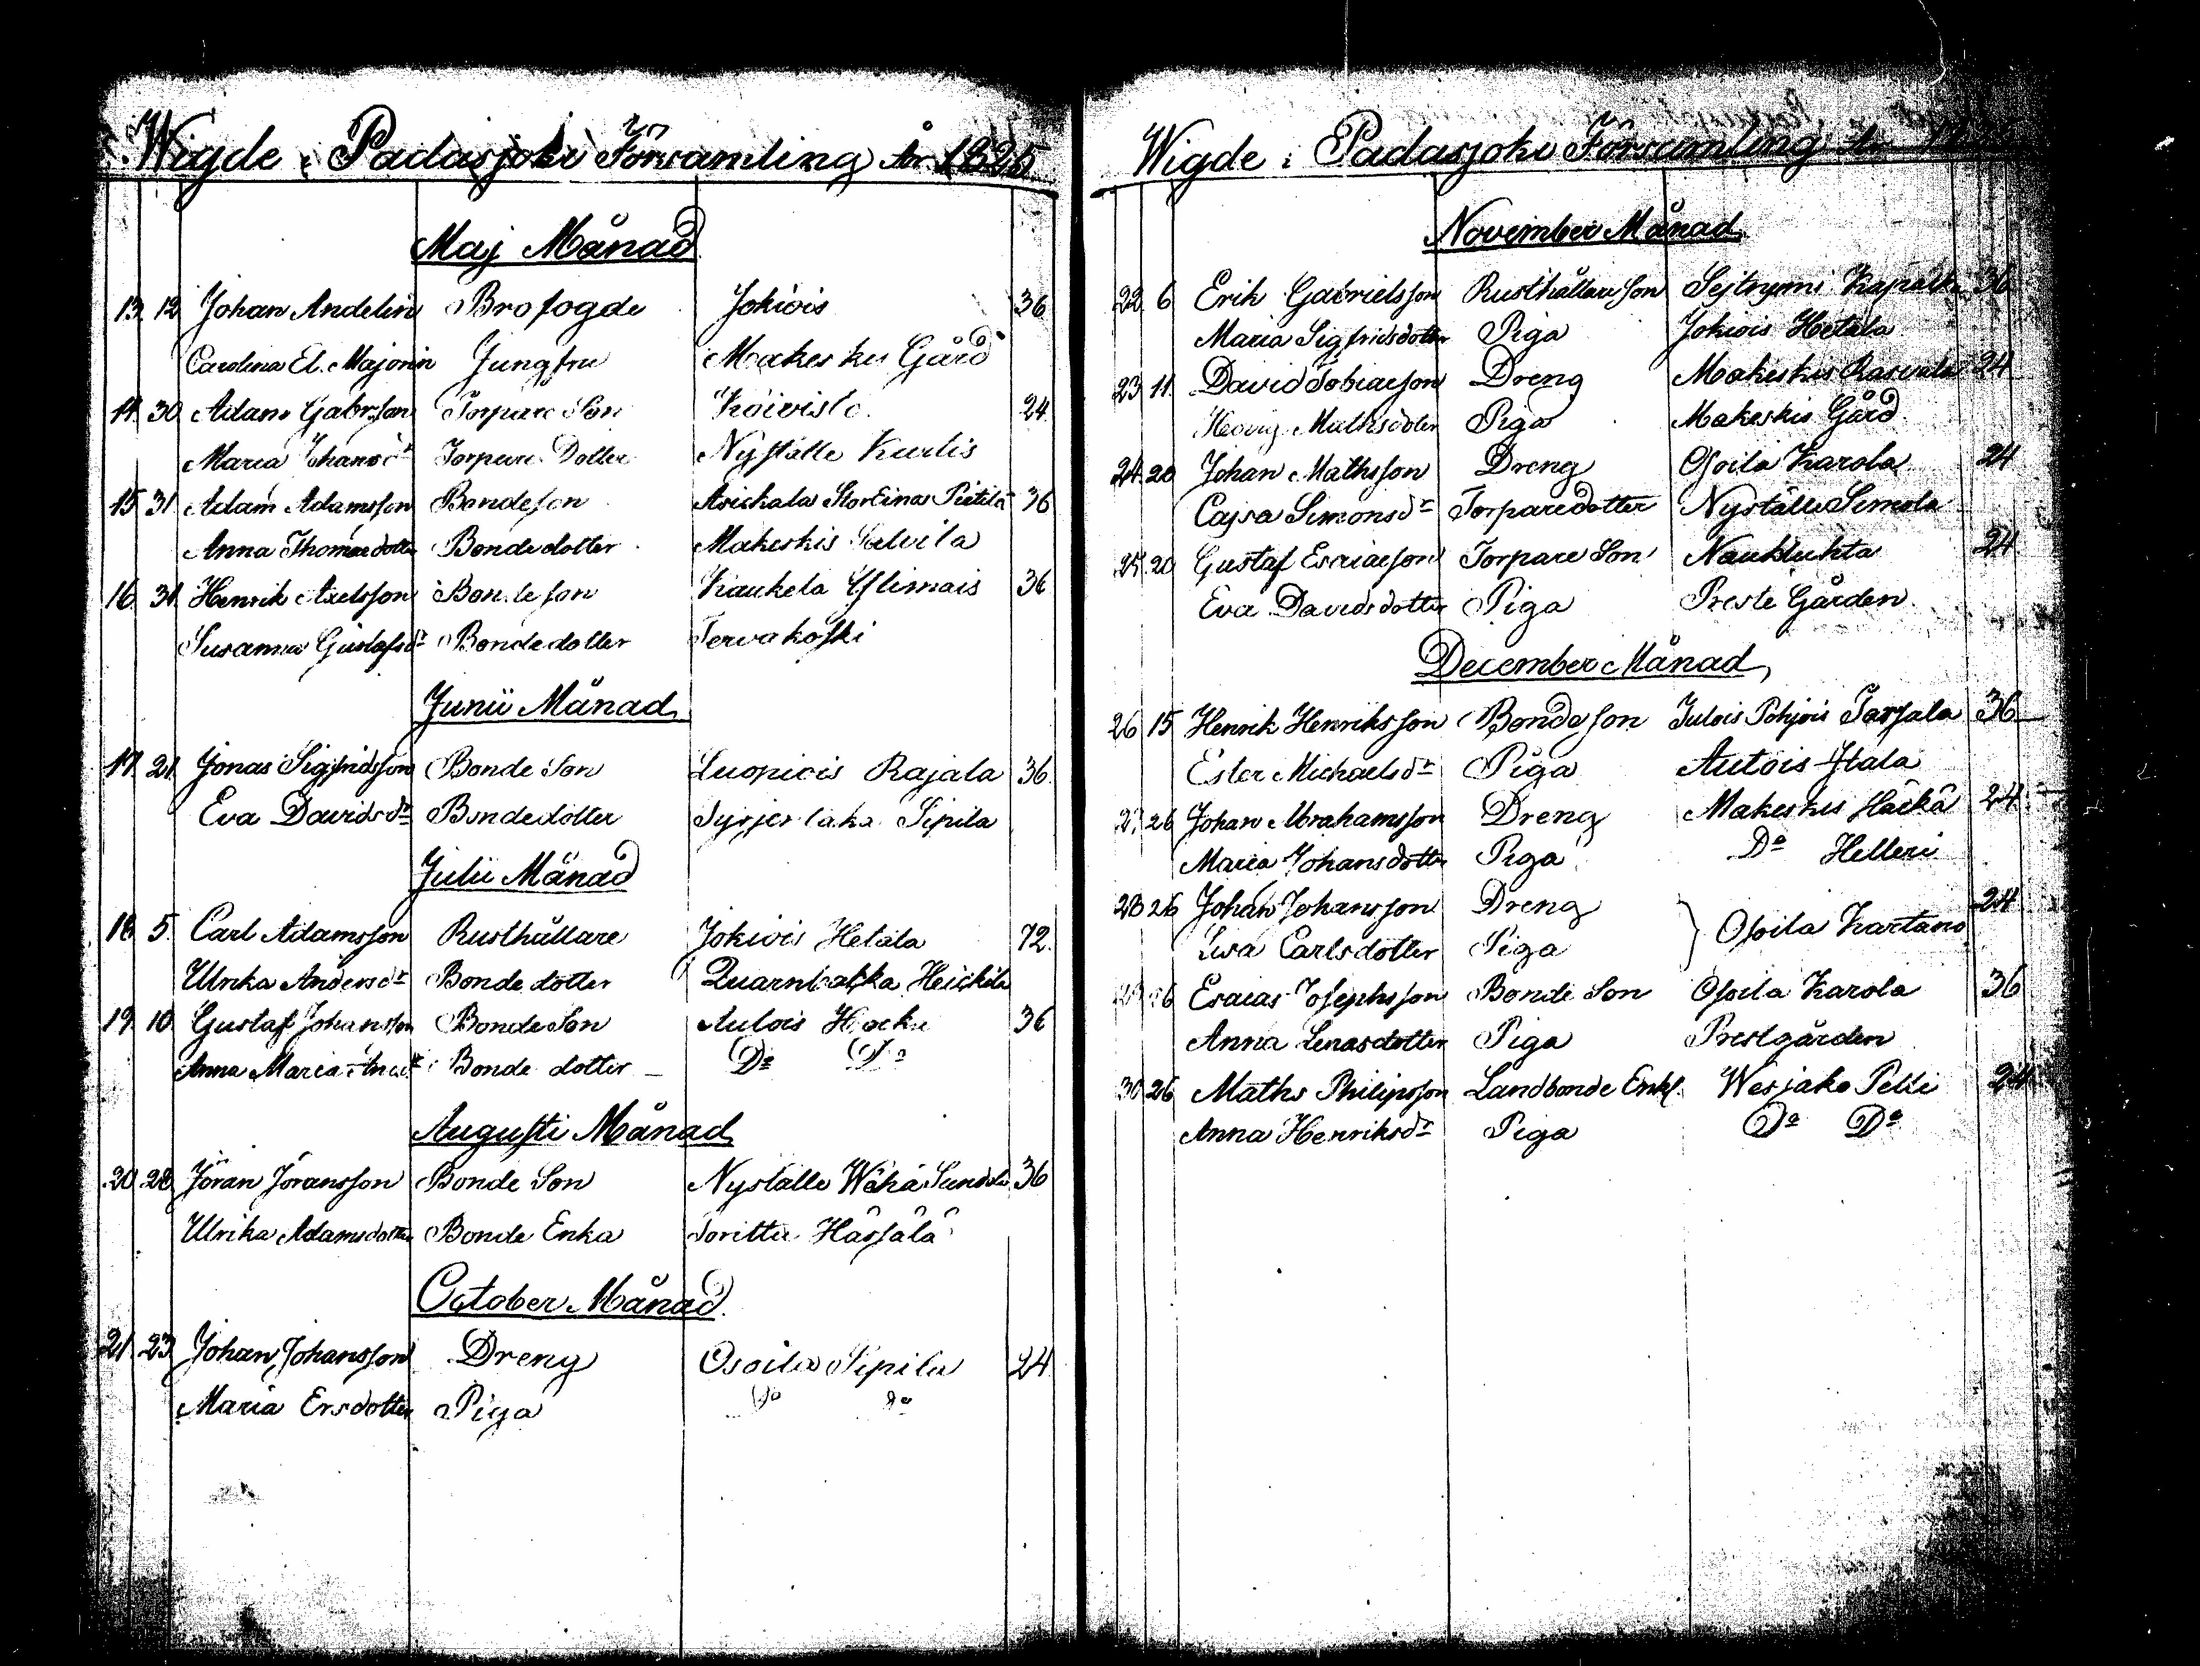 Wigde i Padasjoki Församling År 1825
Maj Månad
13 12 Johan Andelin Brofogde Jokiois 36
Carolina El. Majorin Jungfru Makeskis Gård
14 30 Adam Gabr:sson Torpare Son Koivisto 24
Maria Johansdr Torpare Dotter Nyställe
15 31 Adam Adamsson Bondeson Asickala Pietilä 36
Anna Thomædotter Bondedotter Makeskis
16 31 Henrik Axelsson Bondeson Kaukela 36
Susanna Gustafsdr Bondedotter Tervakoski
Junii Månad
17 21 Jonas Sigfridsson Bonde Son Luopiois Rajala 36
Eva Davidsdr Bondedotter Sipilä
Julii Månad
18 5 Carl Adamsson Rusthållare Jokiois Hetala 72
Ulrika Andersdr Bondedotter Quarnbacka Heickilä
19 10 Gustaf Johansson Bonde Son Autois 36
Anna Maria Bondedotter Do Do
Augusti Månad
20 28 Jöran Jöransson Bonde Son Nyställe Wähä 36
Ulrika Adamsdotter Bonde Enka Torittu Hassala
October Månad
21 23 Johan Johansson Dreng Osoila Sipilä 24
Maria Ersdotter Piga do do
Wigde i Padasjoki Församling År
November Månad
22 6 Erik Gabrielsson Rusthållare Son 36
Maria Sigfridsdotter Piga Jokiois Hetala
23 11 David Tobiæson Dreng Makeskis 24
Hedvig Mathsdoter Piga Makeskis Gård
24 20 Johan Mathsson Dreng Osoila Karola 24
Cajsa Simonsdr Torparedotter Nyställe Simola
25 20 Gustaf Esaiæson Torpare Son 24
Eva Davidsdotter Piga Preste Gården
December Månad
26 15 Henrik Henriksson Bondeson Tulois Pohjois 36
Ester Michaelsdr Piga Autois
27 26 Johan Abrahamsson Dreng Makeskis Häckä 24
Maria Johansdotter Piga Do Helleri
28 26 Johan Johansson Dreng 24
Lisa Carlsdotter Piga Osoila Kartano
29 26 Esaias Josephsson Bonde Son Osoila Karola 36
Anna Lenasdotter Piga Prestgården
30 26 Maths Philipsson Landbonde Enkl. Wesjako Pelli 24
Anna Henriksdr Piga Do Do